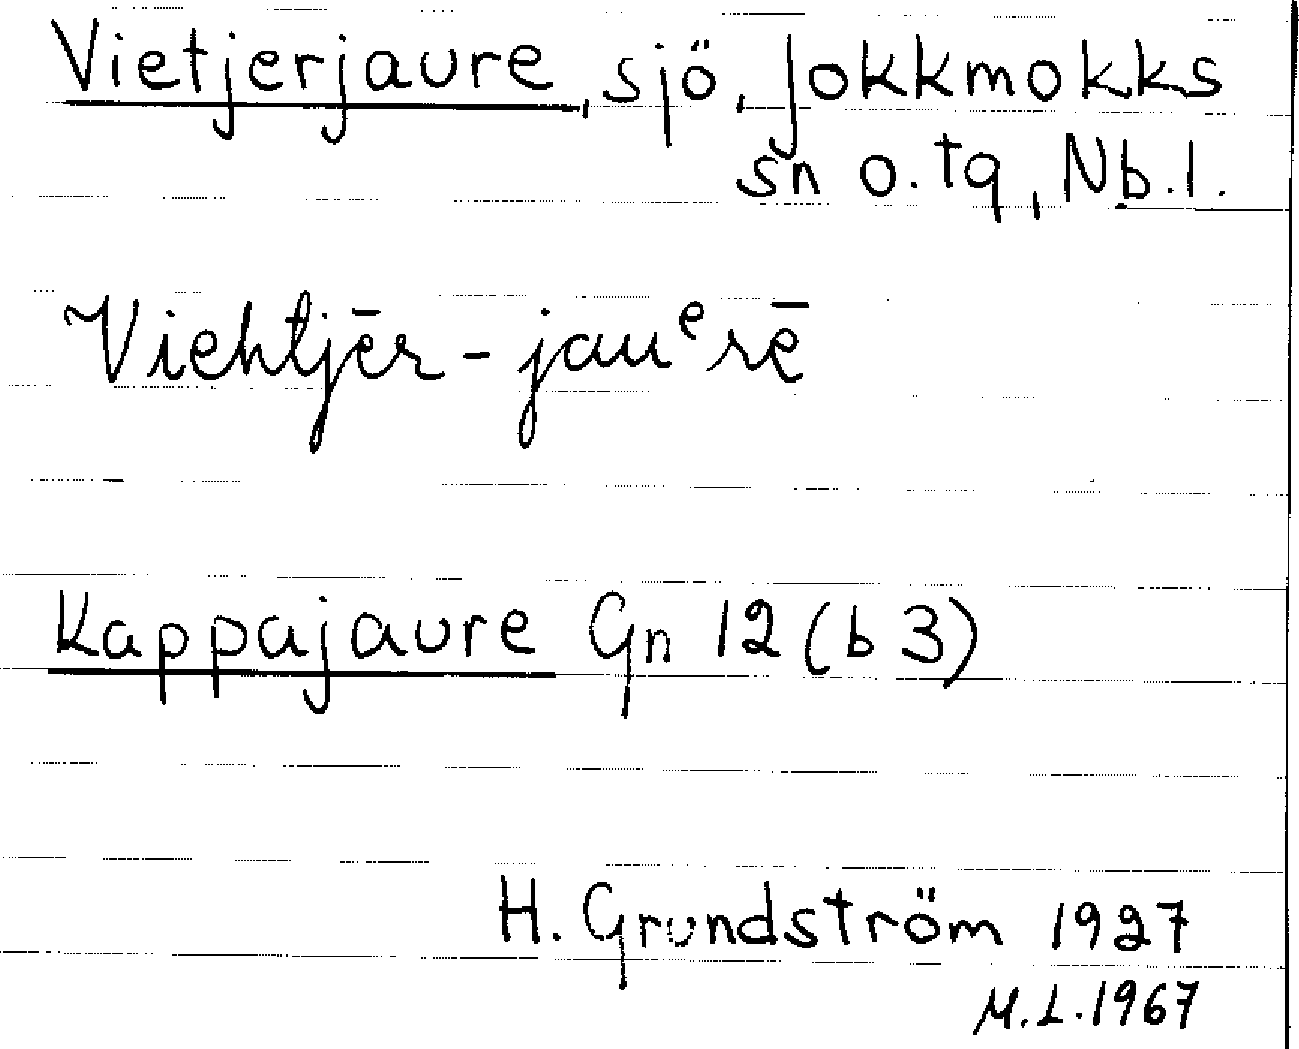 Vietjerjaure, sjö, Jokkmokks
sn o. tg, Nb. l.
Viehtjēr - jauᵉrē
Kappajaure Gn 12 (b 3)
H. Grundström 1927
M. L. 1967